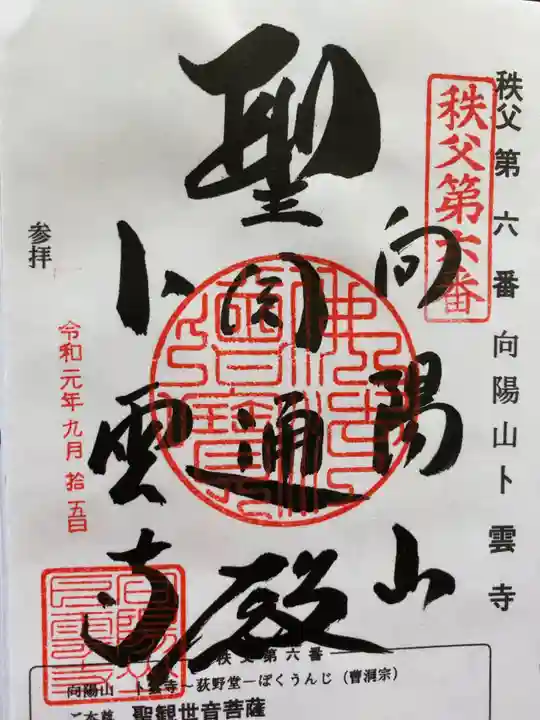 秩父第六番 向陽山卜雲寺
秩父第六番
向陽山
聖
圓通殿
卜雲寺
参拝
令和元年九月拾五日
秩父第六番
向陽山 卜雲寺～荻野堂－ぼくうんじ（曹洞宗）
ご本尊 聖観世音菩薩